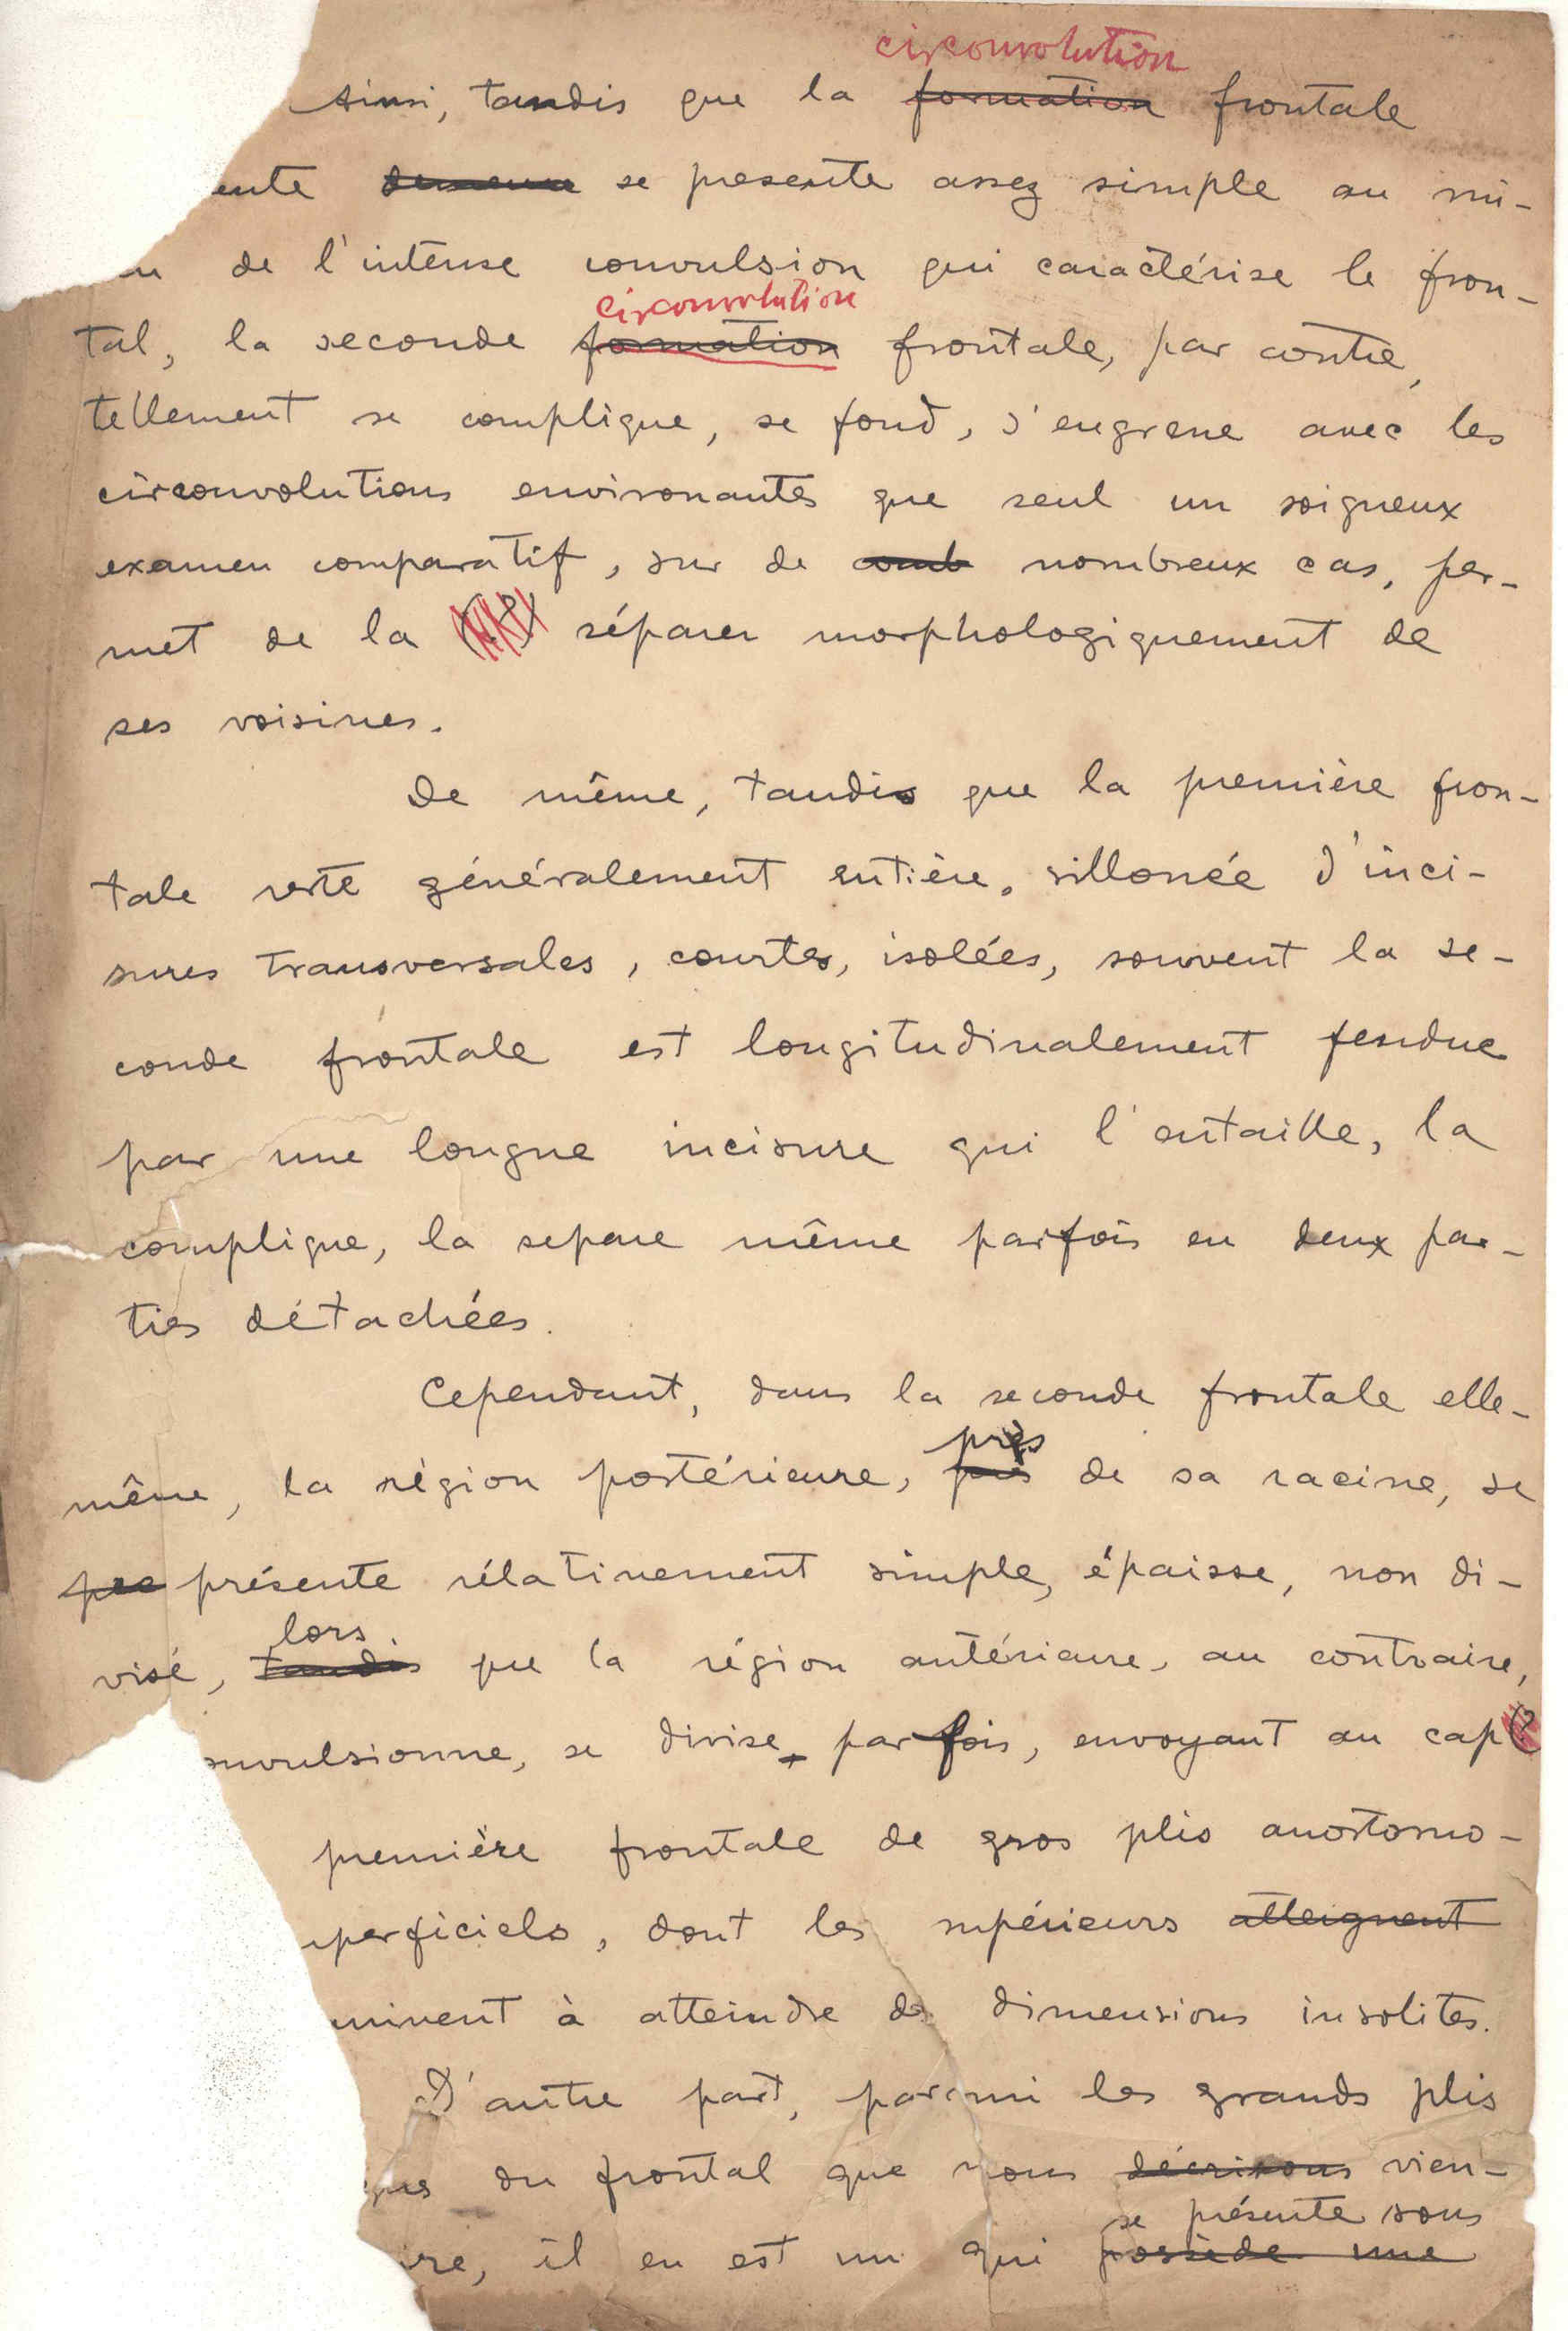 circonvolution
Ainsi, tandis que la formation frontale
ente se presente assez simple au mi-
de l'intense convulsion qui caractérise le fron-
circonvolution
tal, la seconde formation frontale, par contre,
tellement se complique, se fond, s'engrene avec les
circonvolutions environantes que seul un soigneux
examen comparatif, sur de comb nombreux cas, per-
met de la séparer morphologiquement de
ses voisines.
De même, tandis que la première fron-
tale reste généralement entière, sillonée d'inci-
sures transversales, courtes, isolées, souvent la se-
conde frontale est longitudinalement fendue
par une longue incisure qui l'entaille, la
complique, la separe même parfois en deux par-
ties détachées.
Cependant, dans la seconde frontale elle-
près
même, la région postérieure, près de sa racine, se
pre présente rélativement simple, épaisse, non di-
lors
visé, tandis que la région antérieure, au contraire,
nvulsionne, se divise parfois, envoyant au cap
première frontale de gros plis anostomo-
perficiels, dont les supérieurs atteignent
minent à atteindre des dimensions insolites.
D'autre part, parmi les grands plis
du frontal que nous décrivons vien-
se présente sous
ire, il en est un qui possède une